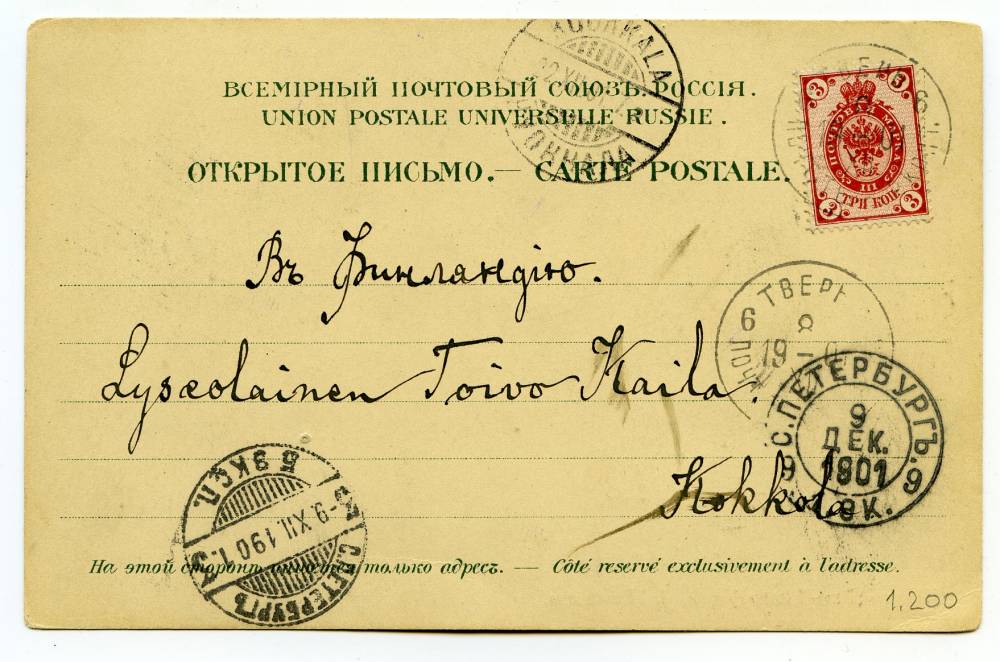 ВСЕМІРНЫЙ ПОЧТОВЫЙ СОЮЗЪ. РОССІЯ.
UNION POSTALE UNIVERSELLE RUSSIE.
ОТКРЫТОЕ ПИСЬМО.— CARTE POSTALE.
3 3
ПОЧТОВАЯ МАРКА
III
ТРИ КОП
3 3
Въ Финляндію.
Lyseolainen Toivo Kaila.
Kokkola
6 ТВЕР
8
19
С.ПЕТЕРБУРГЪ.
9
ДЕК.
1901
8К.
5 ЭКСП.
-9.XII.1901.
С.ПЕТЕРБУРГЪ
На этой сторонѣ пишется только адресъ. — Côté réservé exclusivement à l'adresse.
1,200